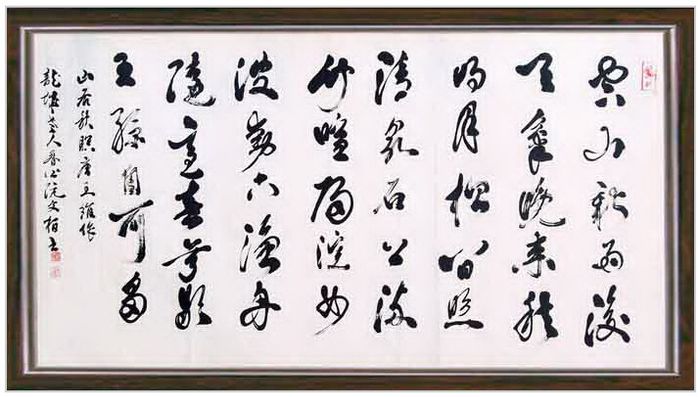 空山新雨後
天氣晚來秋
明月松間照
清泉石上流
竹喧歸浣女
蓮動下漁舟
隨意春芳歇
王孫自可留
山居秋暝唐王維作
龍城人阮文柏